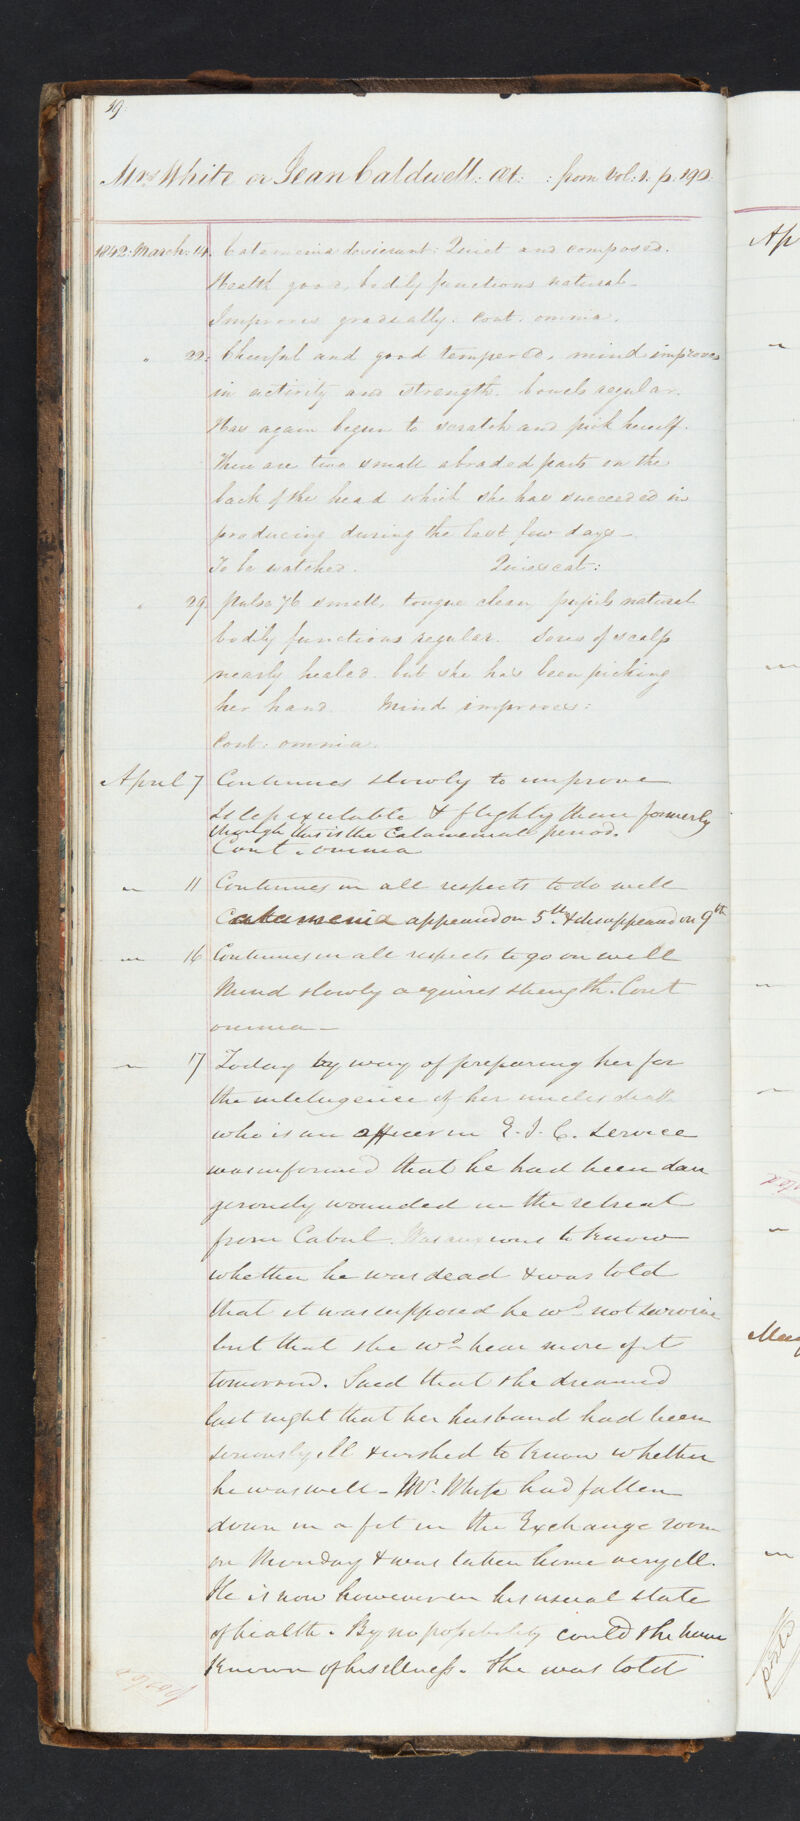 19.
Mrs White or Jean Caldwell: Æt: : from Vol: 1. p. 190.
1842: March: 14. Catamenia devierunt: Quiet and composed.
Health good, bodily functions natural.
Improves gradually. Cont. omnia.
" 22: Cheerful and good tempered. mind improves
in activity and strength. bowels regular.
Has again begun to scratch and pick herself.
There are two small abraded parts on the
back of the head which she has succeeded in
producing during the last few days.
To be watched. Quiescat:
" 29. Pulse 76 small, tongue clean, pupils natural
bodily functions regular. Sores of scalp
nearly healed. but she has been picking
her hand. Mind improves:
Cont: omnia.
April 7 Continues slowly to improve
Is less excitable & flighty than formerly
though this is the Catamenial period.
Cont. omnia
" 11 Continues in all respects to do well
Catamenia appeared on 5th & disappeared on 9th
" 16 Continues in all respects to go on well
Mind slowly acquires strength. Cont
omnia—
" 17 Today by way of preparing her for
the intelligence of her uncles death
who is an officer in E. I. C. Service
was informed that he had been dan
gerously wounded in the retreat
from Cabul. Was anxious to know
whether he was dead & was told
that it was supposed he wd not survive
but that she wd hear more of it
tomorrow. Said that she dreamed
last night that her husband had been
seriously ill & wished to know whether
he was well – Mr. White had fallen
down in a fit in the Exchange room
on Monday & was taken home very ill.
He is now however in his usual state
of health. By no possibility could she have
known of his illness. She was told